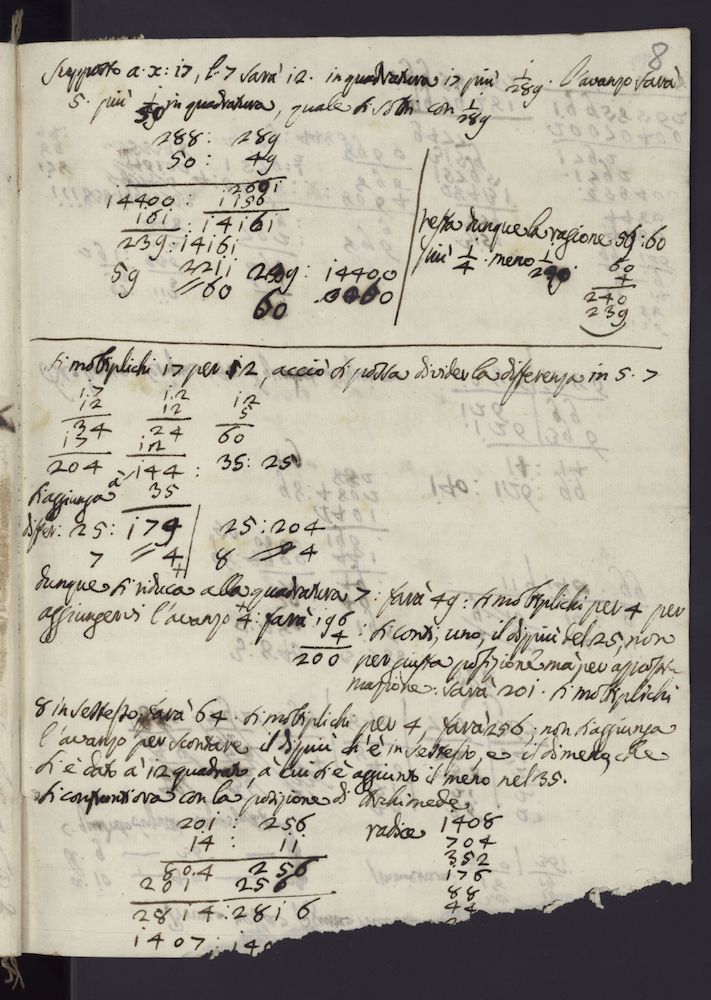 8
Supposto a. x: 17, l. 7 sarà 12. in quadratura 17 più 1/289. l'avanzo sarà
5. più 1/50 in quadratura, quale si con 1/289
288: 289
50: 49
2601
14400: 1156
161 14161
239: 14161
59 2211 239: 14400
60 60 0060
resta dunque la ragione 59: 60
più 1/4. meno 1/240.
60
4
240
239
si moltiplichi 17 per 12, acciò si possa divider la differenza in 5. 7
17 12 12
12 12 5
34 24 60
17 12
204 144: 35: 25
si aggiunga à 35
differ: 25: 179 25: 204
7 4 8 4
dunque si riduca alla quadratura 7: farà 49: si moltiplichi per 4 per
aggiungervi l'avanzo 4: farà 196
4
200
: si conti, uno, il dipiù del 25, non
per giusta posizione mà per approssi
mazione: sarà 201. si moltiplichi
8 in se stesso, sarà 64. si moltiplichi per 4, farà 256: non si aggiunga
l'avanzo per scontare il dipiù ch'è in se stesso, e il dimeno, che
si è dato à 12 quadrato, à cui si è aggiunto il meno nel 35.
si con la posizione di Archimede
201: 256
14: 11
804 256
201 256
2814: 2816
1407: 140
radice 1408
704
352
176
88
44